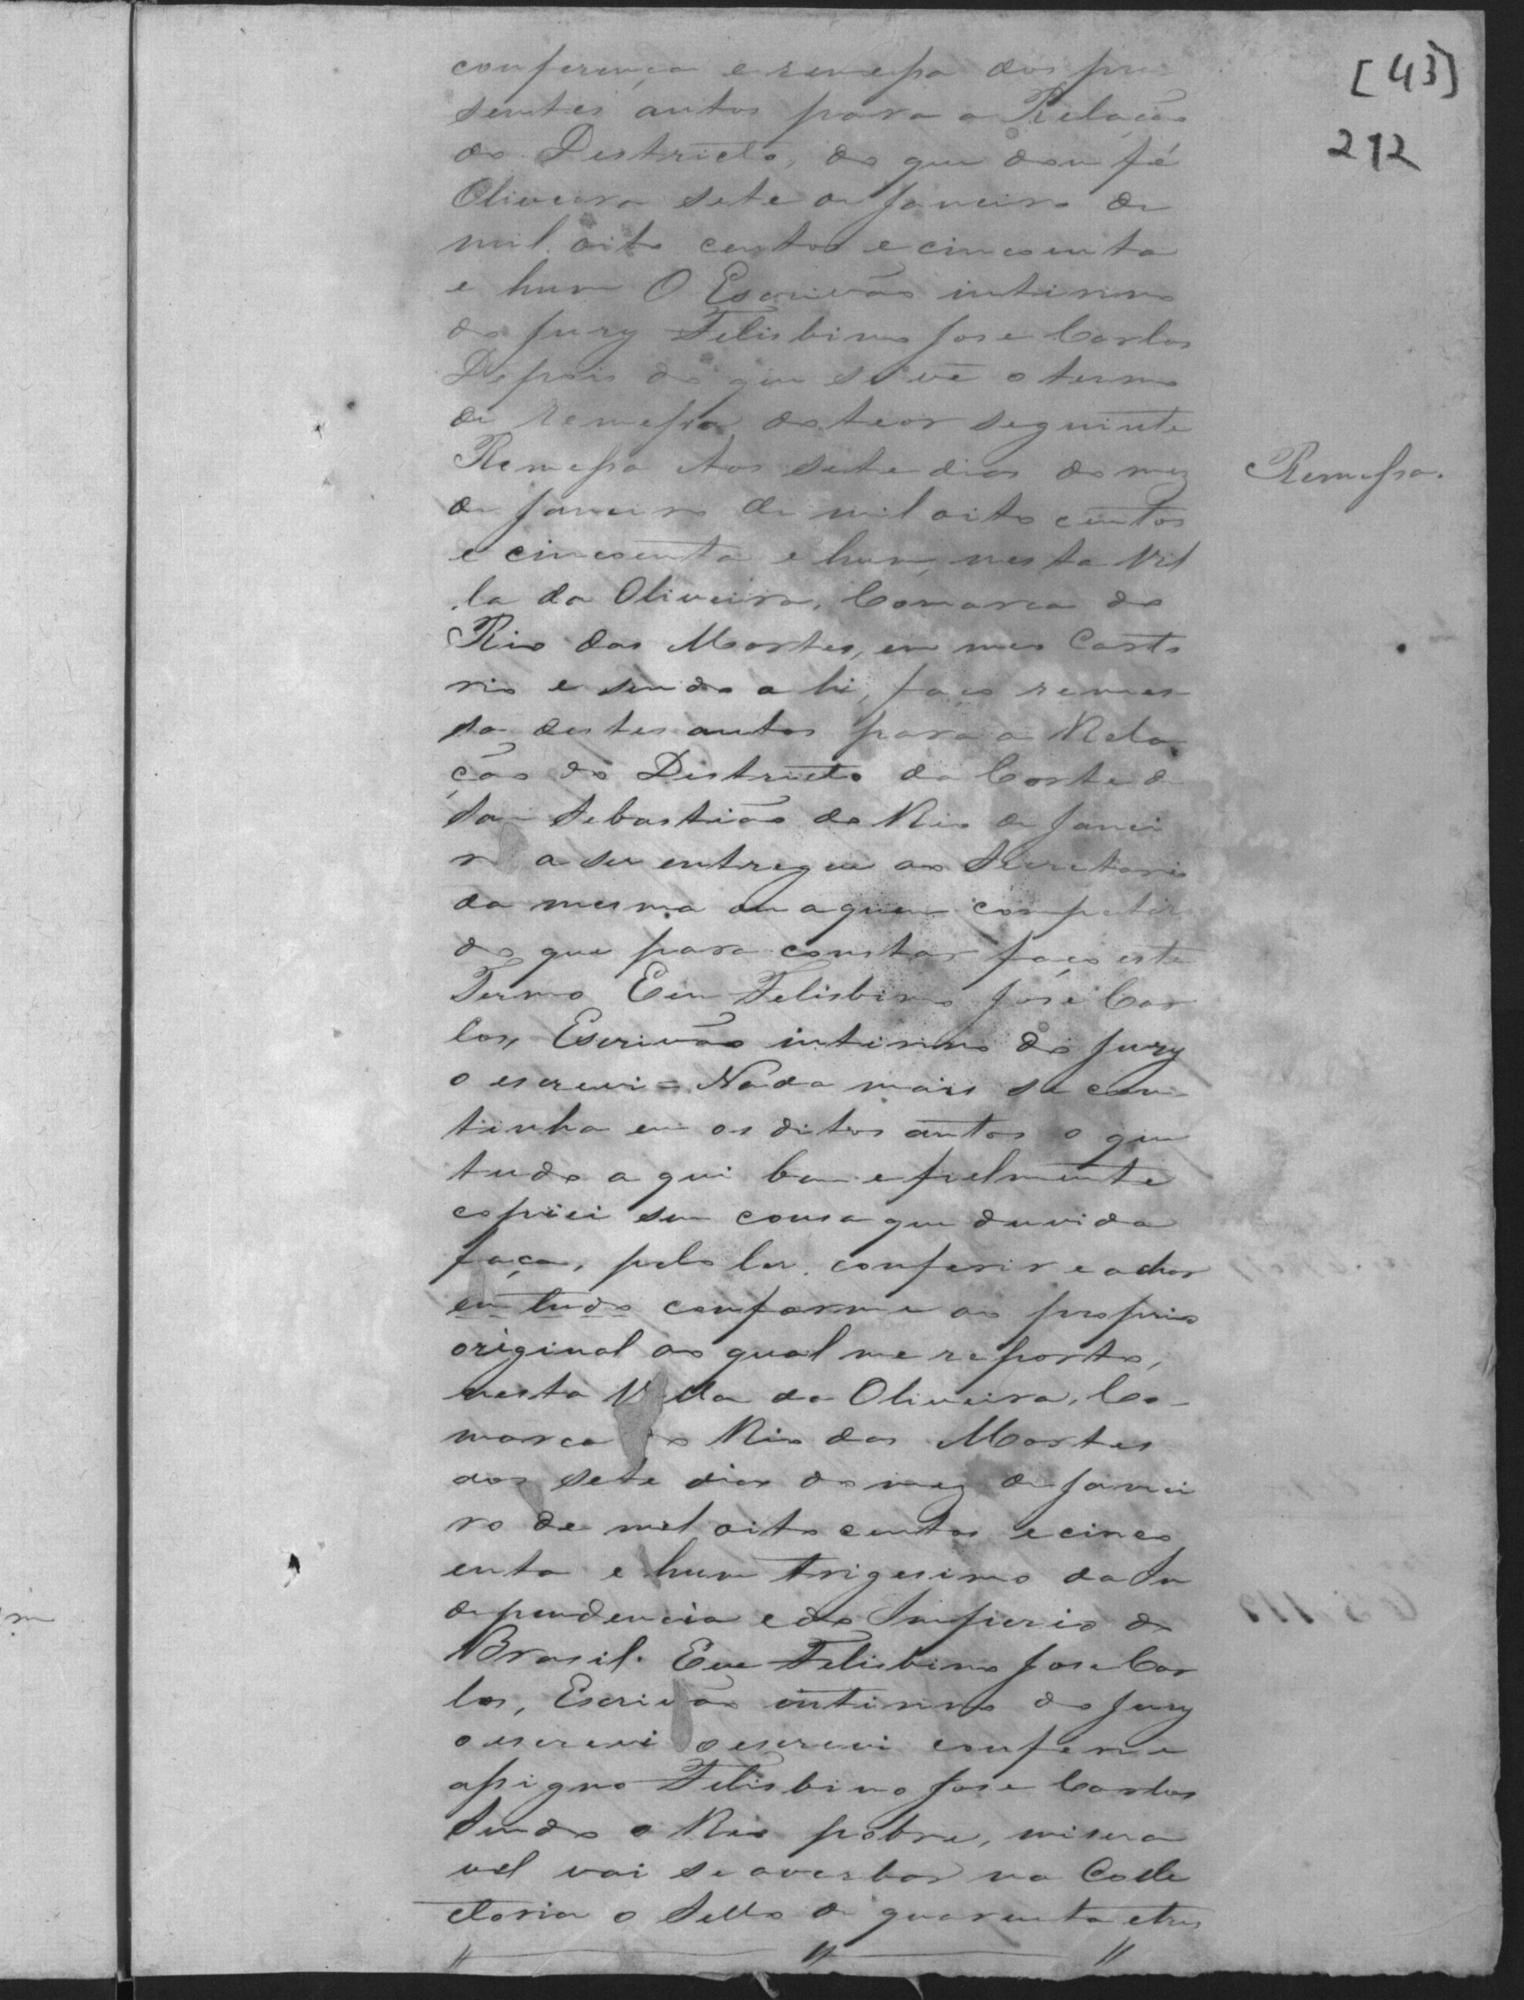 [43]
212
conferencia e remessa dos pre
sentes autos para a Relação
do Districto, do que dou fé
Oliveira sete de Janeiro de
mil oito centos e cincoenta
e hum O Escrivão interino
do Jury Felisbino Jose Carlos
Depois do que se vê o termo
de remessa do teor seguinte
Remessa Aos sete dias do mez
de Janeiro de mil oito centos
e cincoenta e hum, nesta Vil
la da Oliveira, Comarca do
Rio das Mortes, em meo Carto
rio e sendo a hi, faço remes
sa destes autos para a Rela
ção do Districto da Corte de
São Sebastião do Rio de Janei
ro a ser entregue ao Secretario
da mesma ou a quem competir
do que para constar faço este
Termo Eu Felisbino José Car
los, Escrivão interino do Jury
o escrevi = Nada mais se con-
tinha em os ditos autos o que
tudo a qui bem e fielmente
copiei sem cousa que duvida
faça, pelo ler, conferir e achar
em tudo conforme ao proprio
original ao qual me reporto,
nesta Villa da Oliveira, Co-
marca do Rio das Mortes
aos sete dias do mez de Janei
ro de mil oito centos e cinco
enta e hum trigesimo da In
dependencia e do Imperio do
Brasil. Eu Felisbino Jose Car
los, Escrivão interino do Jury
o escrevi o escrevi conferi e
assigno Felisbino Jose Carlos
Sendo o Reo pobre, misera
vel vai se averbar na Colle
ctoria o Sello de quarenta e tres
Remessa.